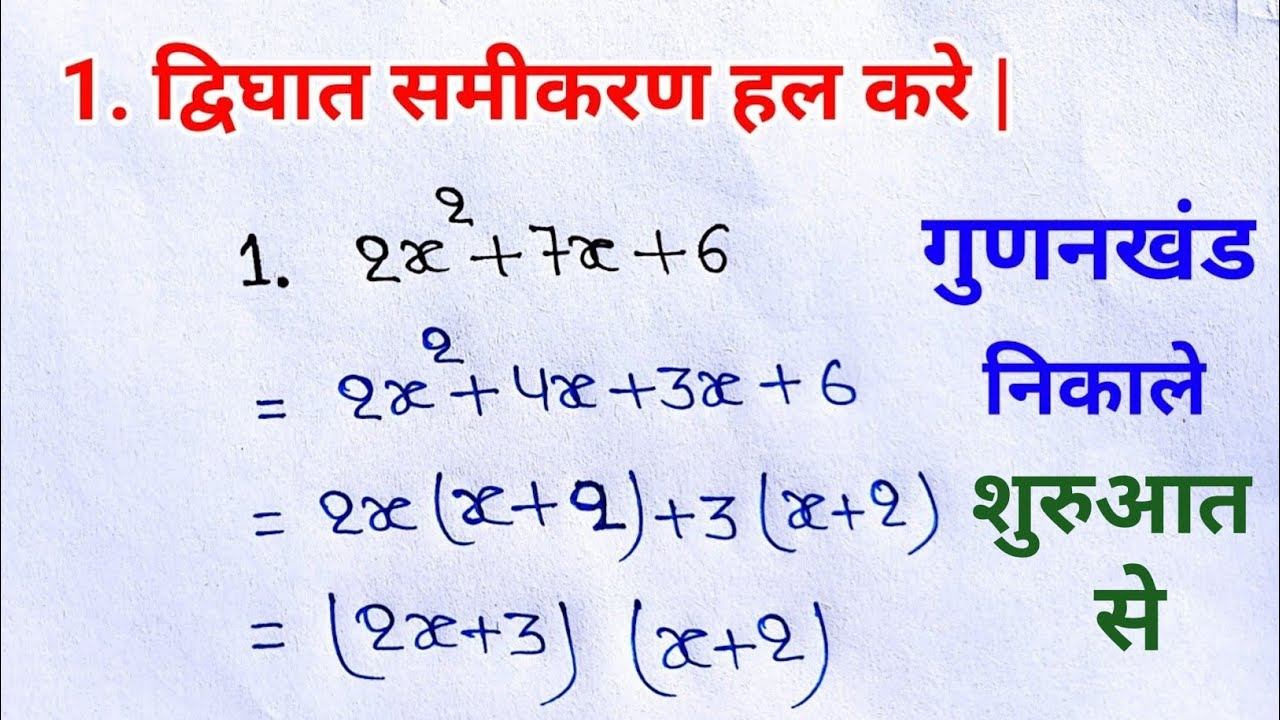 1. द्विघात समीकरण हल करे |
1. 2x² + 7x + 6
= 2x² + 4x + 3x + 6
= 2x (x + 2) + 3 (x + 2)
= (2x + 3) (x + 2)
गुणनखंड
निकाले
शुरुआत
से